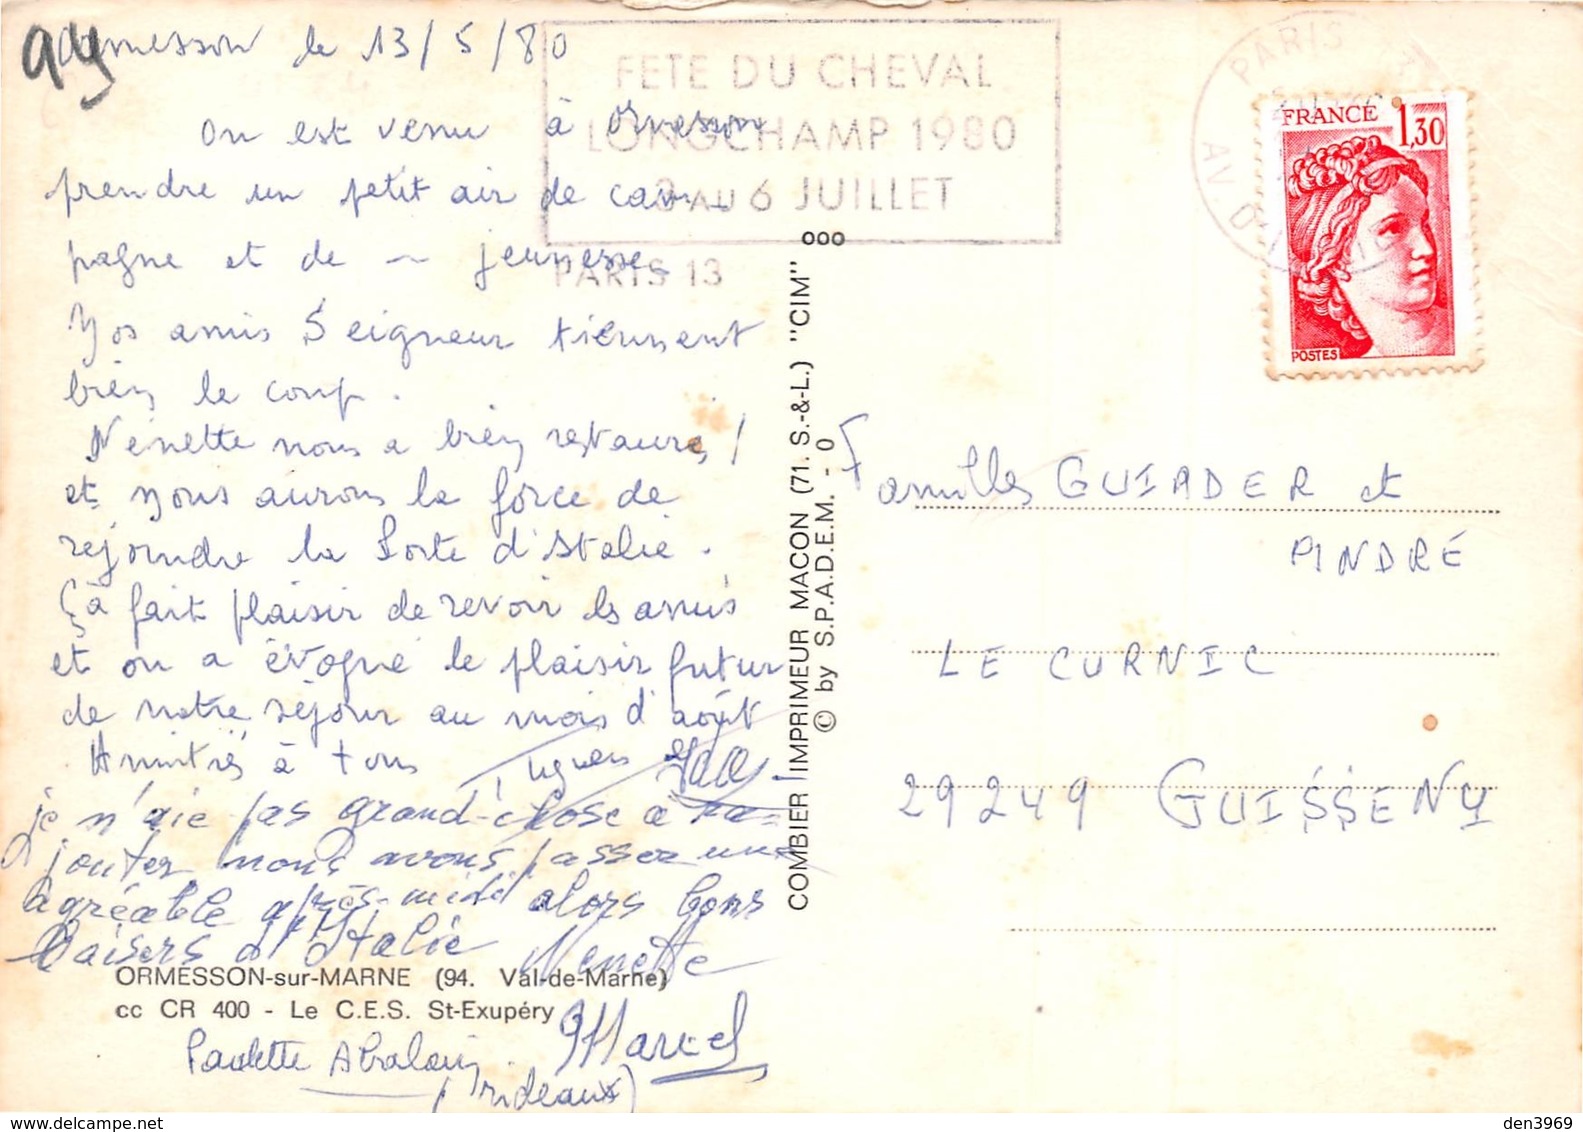 Ormesson le 13/5/80
94
On est venu à Ormesson
prendre un petit air de cam-
pagne et de ~ jeunesse.
Nos amis Seigneur tiennent
bien le coup.
Nénette nous a bien restauré,!
et nous aurons la force de
rejoindre la Porte d'Italie.
Çà fait plaisir de revoir les amis
et on a évoqué le plaisir futur
de notre séjour au mois d'août
Amitiés à tous
je n'aie pas grand-chose a ra-
jouter nous avons passer une
agréable après-midi alors bons
Baisers d'Italie Nenette
ORMESSON-sur-MARNE (94. Val-de-Marne)
cc CR 400 - Le C.E.S. St-Exupéry
Marcel
Paulette
(rideaux)
FETE DU CHEVAL
LONGCHAMP 1980
3 AU 6 JUILLET
PARIS 13
COMBIER IMPRIMEUR MACON (71. S.-&-L.) "CIM" ooo
© by S.P.A.D.E.M. - 0
PARIS
AV. D'ITALIE
FRANCE 1,30
POSTES
Familles GUIADER et
ANDRÉ
LE CURNIC
29249 GUISSENY
den3969